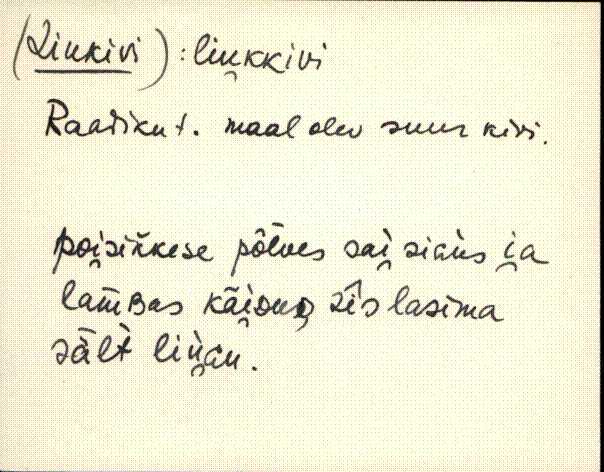 (Linkivi) : liŋkkivi
Raadiku t. maal olev suur kivi.
poi̯siǹkese põlves sai̯ siàùs i̯a
lam̄ʙas käi̯ᴅuᴅ, sîs lasima
sält liŋ̀ɢu.